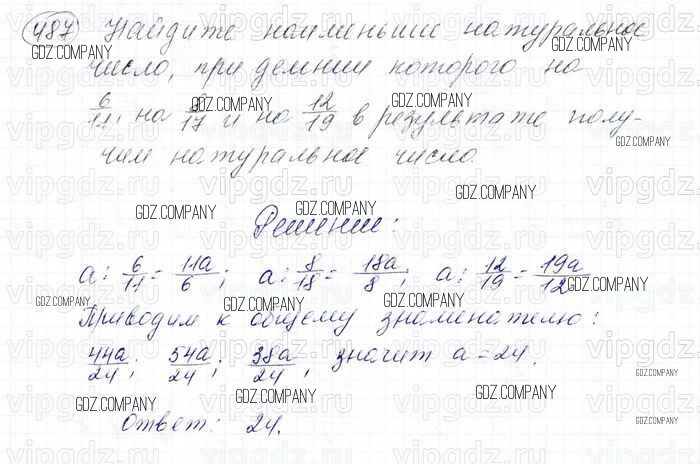 487 Найдите наименьшее натуральное
число, при делении которого на
6/11, на 8/17 и на 12/19 в результате полу-
чим натуральное число.
Решение:
a : 6/11 = 11a/6; a : 8/18 = 18a/8; a : 12/19 = 19a/12
Приводим к общему знаменателю:
44a/24; 54a/24; 38a/24, значит a = 24.
Ответ: 24.